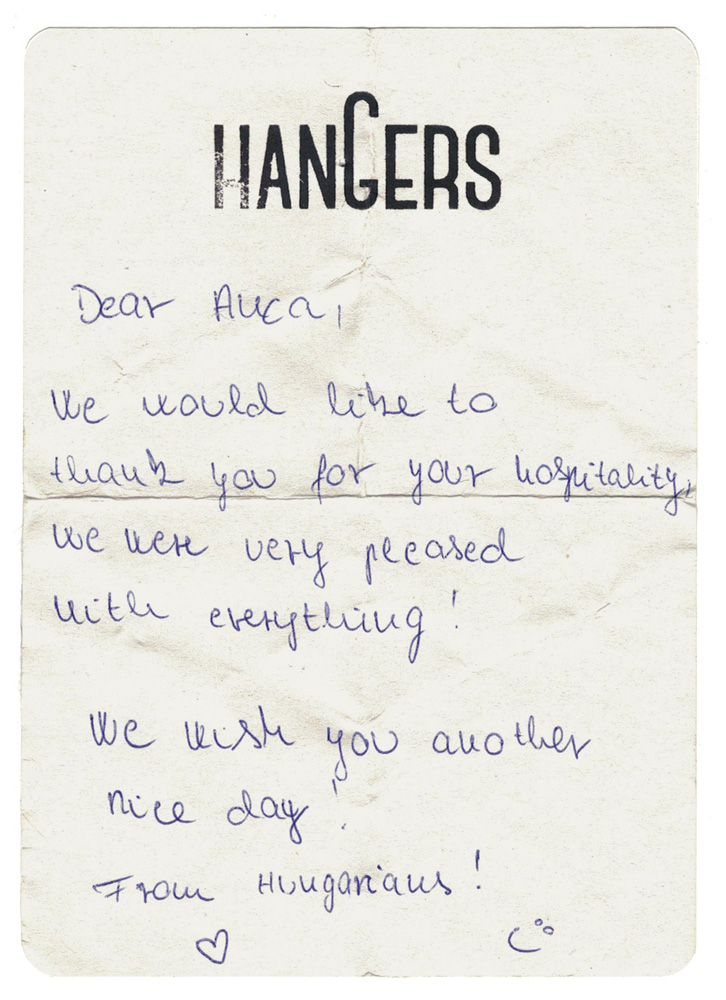 HANGERS
Dear Anca,
We would like to
thank you for your hospitality,
we were very pleased
with everything!
We wish you another
nice day!
From Hungarians!